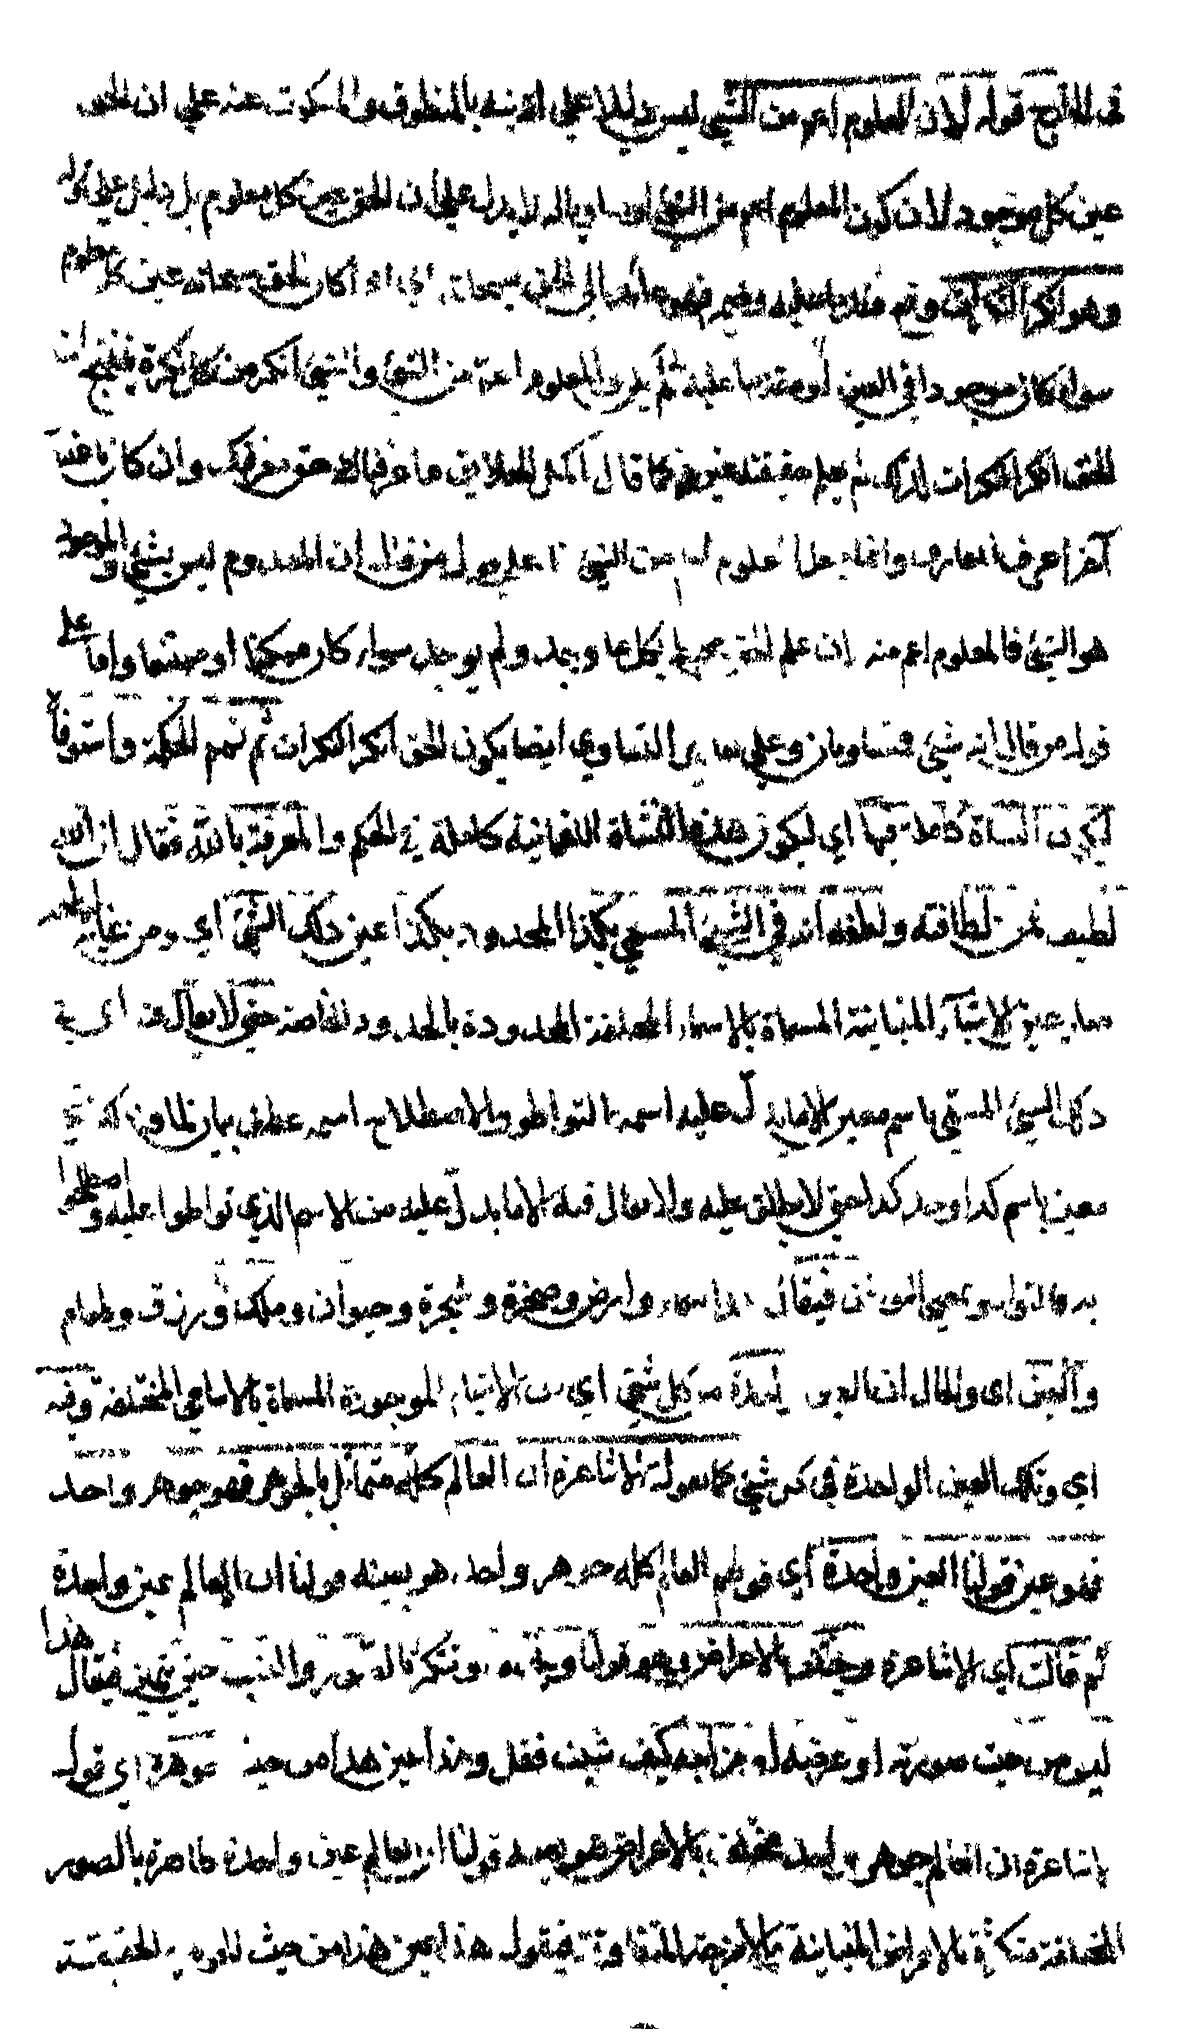 قوله لان المعلوم اعم من الشيء ليس دليلا على بالمنطوق والمسكوت عنه على ان الحق
عين كل موجود لان كون المعلوم اعم من الشيء او مساويا له لا يدل على ان الحق عين كل معلوم بل دليل على قوله
وهو انكر النكرات وقد فهو الحق سبحانه اي اذا كان الحق سبحانه عين كل معلوم
سواء كان موجودا في العين او ثم المعلوم اعم من الشيء والشيء انكر من كل نكرة فينتج ان
الحق انكر النكرات لذلك لم يعلم حقيقته غيره كما قال اكمل الخلايق ما عرفناك حق معرفتك وان كان باعتبار
آخر اعرف المعارف وانما جعل المعلوم اعم من الشيء بناء على قول من قال ان المعدوم ليس بشيء والموجود
هو الشيء فالمعلوم اعم منه لان علم الحق محيط بكل ما وجد ولم يوجد سواء كان ممكنا او ممتنعا واما على
قول من قال انه شيء فمتساويان وعلى تقدير التساوي ايضا يكون الحق انكر النكرات ثم تمم الحكمة واستوفاها
لتكون النشأة كاملة فيها اي لتكون هذه النشأة اللقمانية كاملة في الحكم والمعرفة بالله فقال ان الله
لطيف فمن لطافته ولطفه انه في الشيء المسمى بكذا المحدود بكذا عين ذلك الشيء اي ومن غاية لطفه
صار عين الاشياء المتباينة المسماة بالاسماء المختلفة المحدودة بالحدود الخاصة حتى لا يقال فيه اي في
ذلك الشيء المسمى باسم معين الا ما يدل عليه اسمه بالتواطؤ والاصطلاح اسمه عطف بيان لما
معين باسم كذا وحد كذا حتى لا يطلق عليه ولا يقال فيه الا ما يدل عليه من الاسم الذي تواطؤا عليه واصطلحوا
فيقال هذا سماء وارض وصخرة وشجرة وحيوان وملك ورزق وطعام
والعين اي والحال ان العين واحدة من كل شيء اي من الاشياء الموجودة المسماة بالاسامي المختلفة وفيه
اي وتلك العين الواحدة في كل شيء كما تقول الاشاعرة ان العالم كله متماثل بالجوهر فهو جوهر واحد
فهو عين قولنا العين واحدة اي قولهم العالم كله جوهر واحد هو بعينه قولنا ان العالم عين واحدة
ثم قالت اي الاشاعرة ويختلف بالاعراض وهو قولنا ويختلف ويتكثر بالصور والنسب حتى يتميز فيقال هذا
ليس هذا من حيث صورته او عرضه او مزاجه كيف شئت فقل وهذا عين هذا من حيث جوهره اي قول
الاشاعرة ان العالم جوهر واحد مختلف بالاعراض هو بعينه قولنا ان العالم عين واحدة ظاهرة بالصور
المختلفة متكثرة بالاعراض المتباينة بالامزجة المتفاوتة فيقول هذا عين هذا من حيث الحقيقة